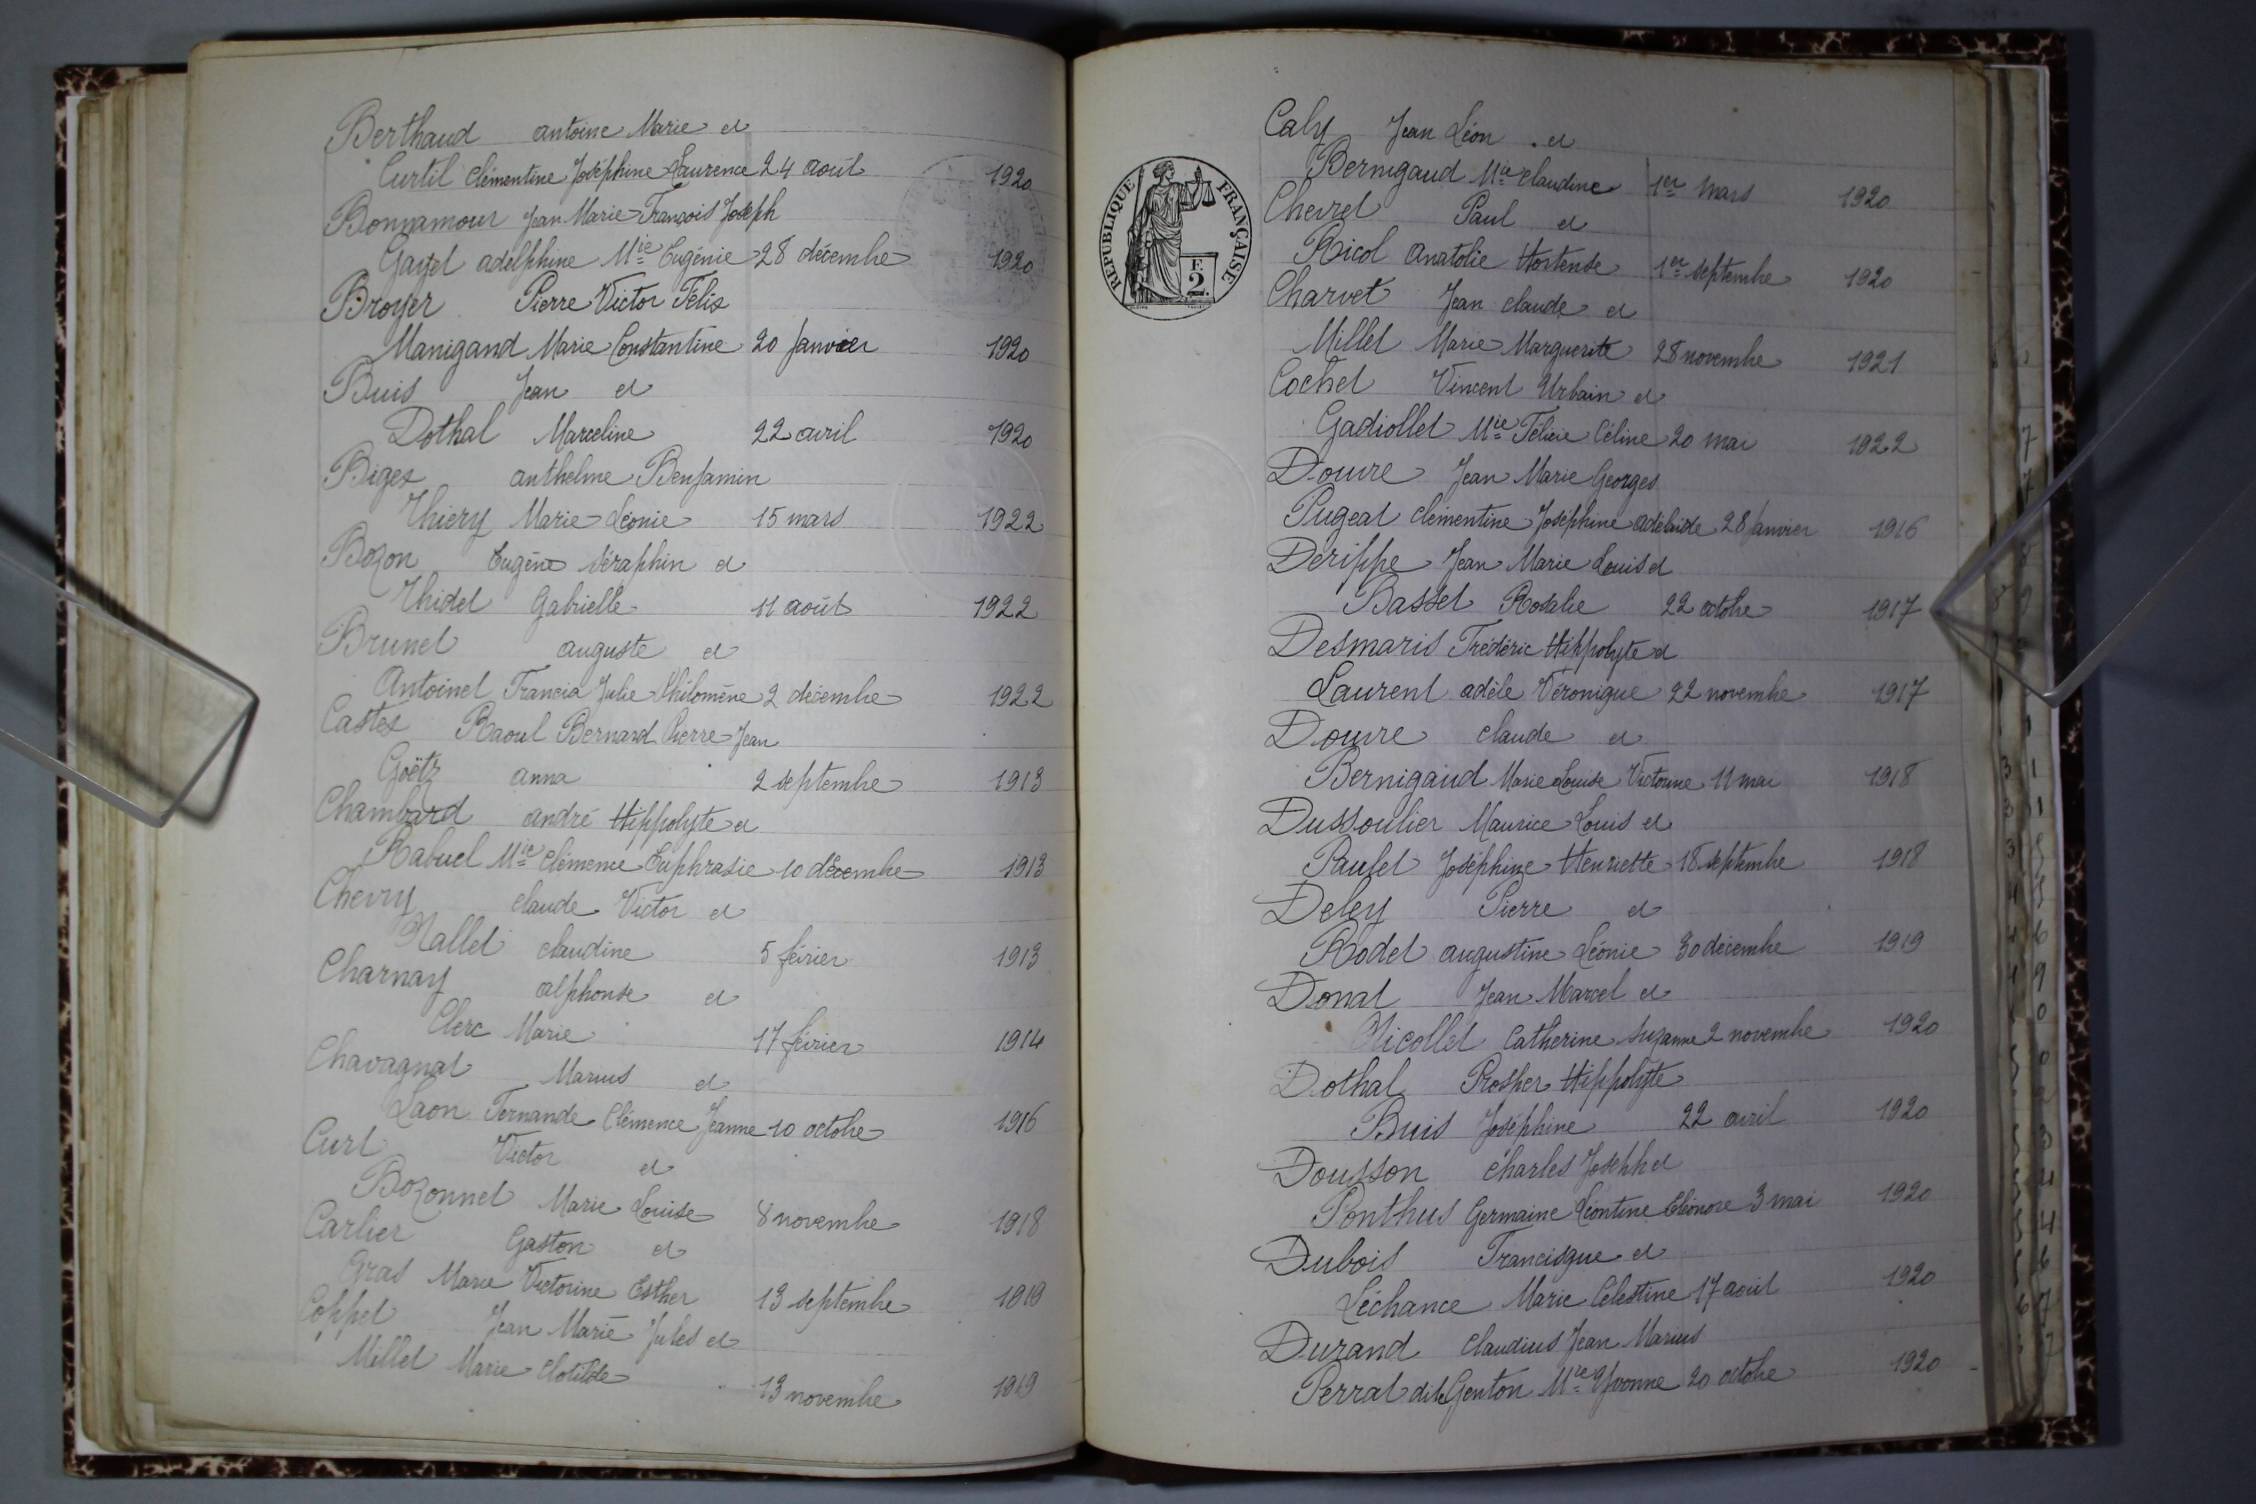 Berthaud antoine Marie et
Curtil Clémentine Joséphine Laurence 24 août 1920
Bonnamour Jean Marie François Joseph
Gayet adelphine Mie Eugénie 28 décembre 1920
Broyer Pierre Victor Félix
Manigand Marie Constantine 20 Janvier 1920
Buis Jean et
Dothal Marceline 22 avril 1920
Biges anthelme Benjamin
Thiery Marie Léonie 15 mars 1922
Bozon Eugène Séraphin et
Thidet Gabrielle 11 août 1922
Brunet auguste et
Antoinet Francia Julie Philomène 2 décembre 1922
Castex Raoul Bernard Pierre Jean
Goëtz anna 2 septembre 1913
Chambard andré Hippolyte et
Rabuel Mie Clémence Euphrasie 10 décembre 1913
Chevry claude Victor et
Nallet claudine 5 février 1913
Charnay alphonse et
Clerc Marie 17 février 1914
Chavagnat Marius et
Laon Fernande Clémence Jeanne 10 octobre 1916
Curt Victor et
Bozonnet Marie Louise 8 novembre 1918
Carlier Gaston et
Gras Marie Victorine Esther 13 septembre 1919
Coppet Jean Marie Jules et
Millet Marie Clotilde 13 novembre 1919
RÉPUBLIQUE FRANÇAISE
F.
2.
Caly Jean Léon et
Bernigaud Mie Claudine 1er mars 1920
Chevret Paul et
Ricol Anatolie Hortense 1er septembre 1920
Charvet Jean claude et
Millet Marie Marguerite 28 novembre 1921
Cochet Vincent Urbain et
Gadiollet Mie Félicie Céline 20 mai 1922
Douvre Jean Marie Georges
Pugeat Clémentine Joséphine adélaïde 28 Janvier 1916
Derippe Jean Marie Louis et
Basset Rosalie 22 octobre 1917
Desmaris Frédéric Hippolyte et
Laurent adèle Véronique 22 novembre 1917
Douvre claude et
Bernigaud Marie Louise Victorine 11 mai 1918
Dussoulier Maurice Louis et
Paufet Joséphine Henriette 18 septembre 1918
Deley Pierre et
Rodet augustine Léonie 30 décembre 1919
Donat Jean Marcel et
Nicollet Catherine Suzanne 2 novembre 1920
Dothal Prosper Hippolyte
Buis Joséphine 22 avril 1920
Dousson Charles Joseph et
Ponthus Germaine Léontine Eléonore 3 mai 1920
Dubois Francisque et
Léchance Marie Célestine 17 août 1920
Durand Claudius Jean Marius
Perrat dit Genton Mie Yvonne 20 octobre 1920